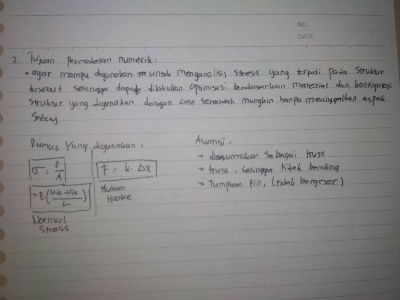 NO
DATE
2. Tujuan permodelan numerik:
• agar mampu digunakan untuk menganalisis stress yang terjadi pada struktur
tersebut sehingga dapat dilakukan optimisasi berdasarkan material dan konfigurasi
struktur yang digunakan dengan cost serendah mungkin tanpa meninggalkan aspek
safety
Rumus yang digunakan:
σ = F/A
= E(U2x-U1x/L)
Normal
stress
F = k. Δx
Hukum
Hooke
Asumsi:
→ diasumsikan sebagai truss
→ truss, sehingga tidak bending
→ Tumpuan pin, (tidak bergeser)